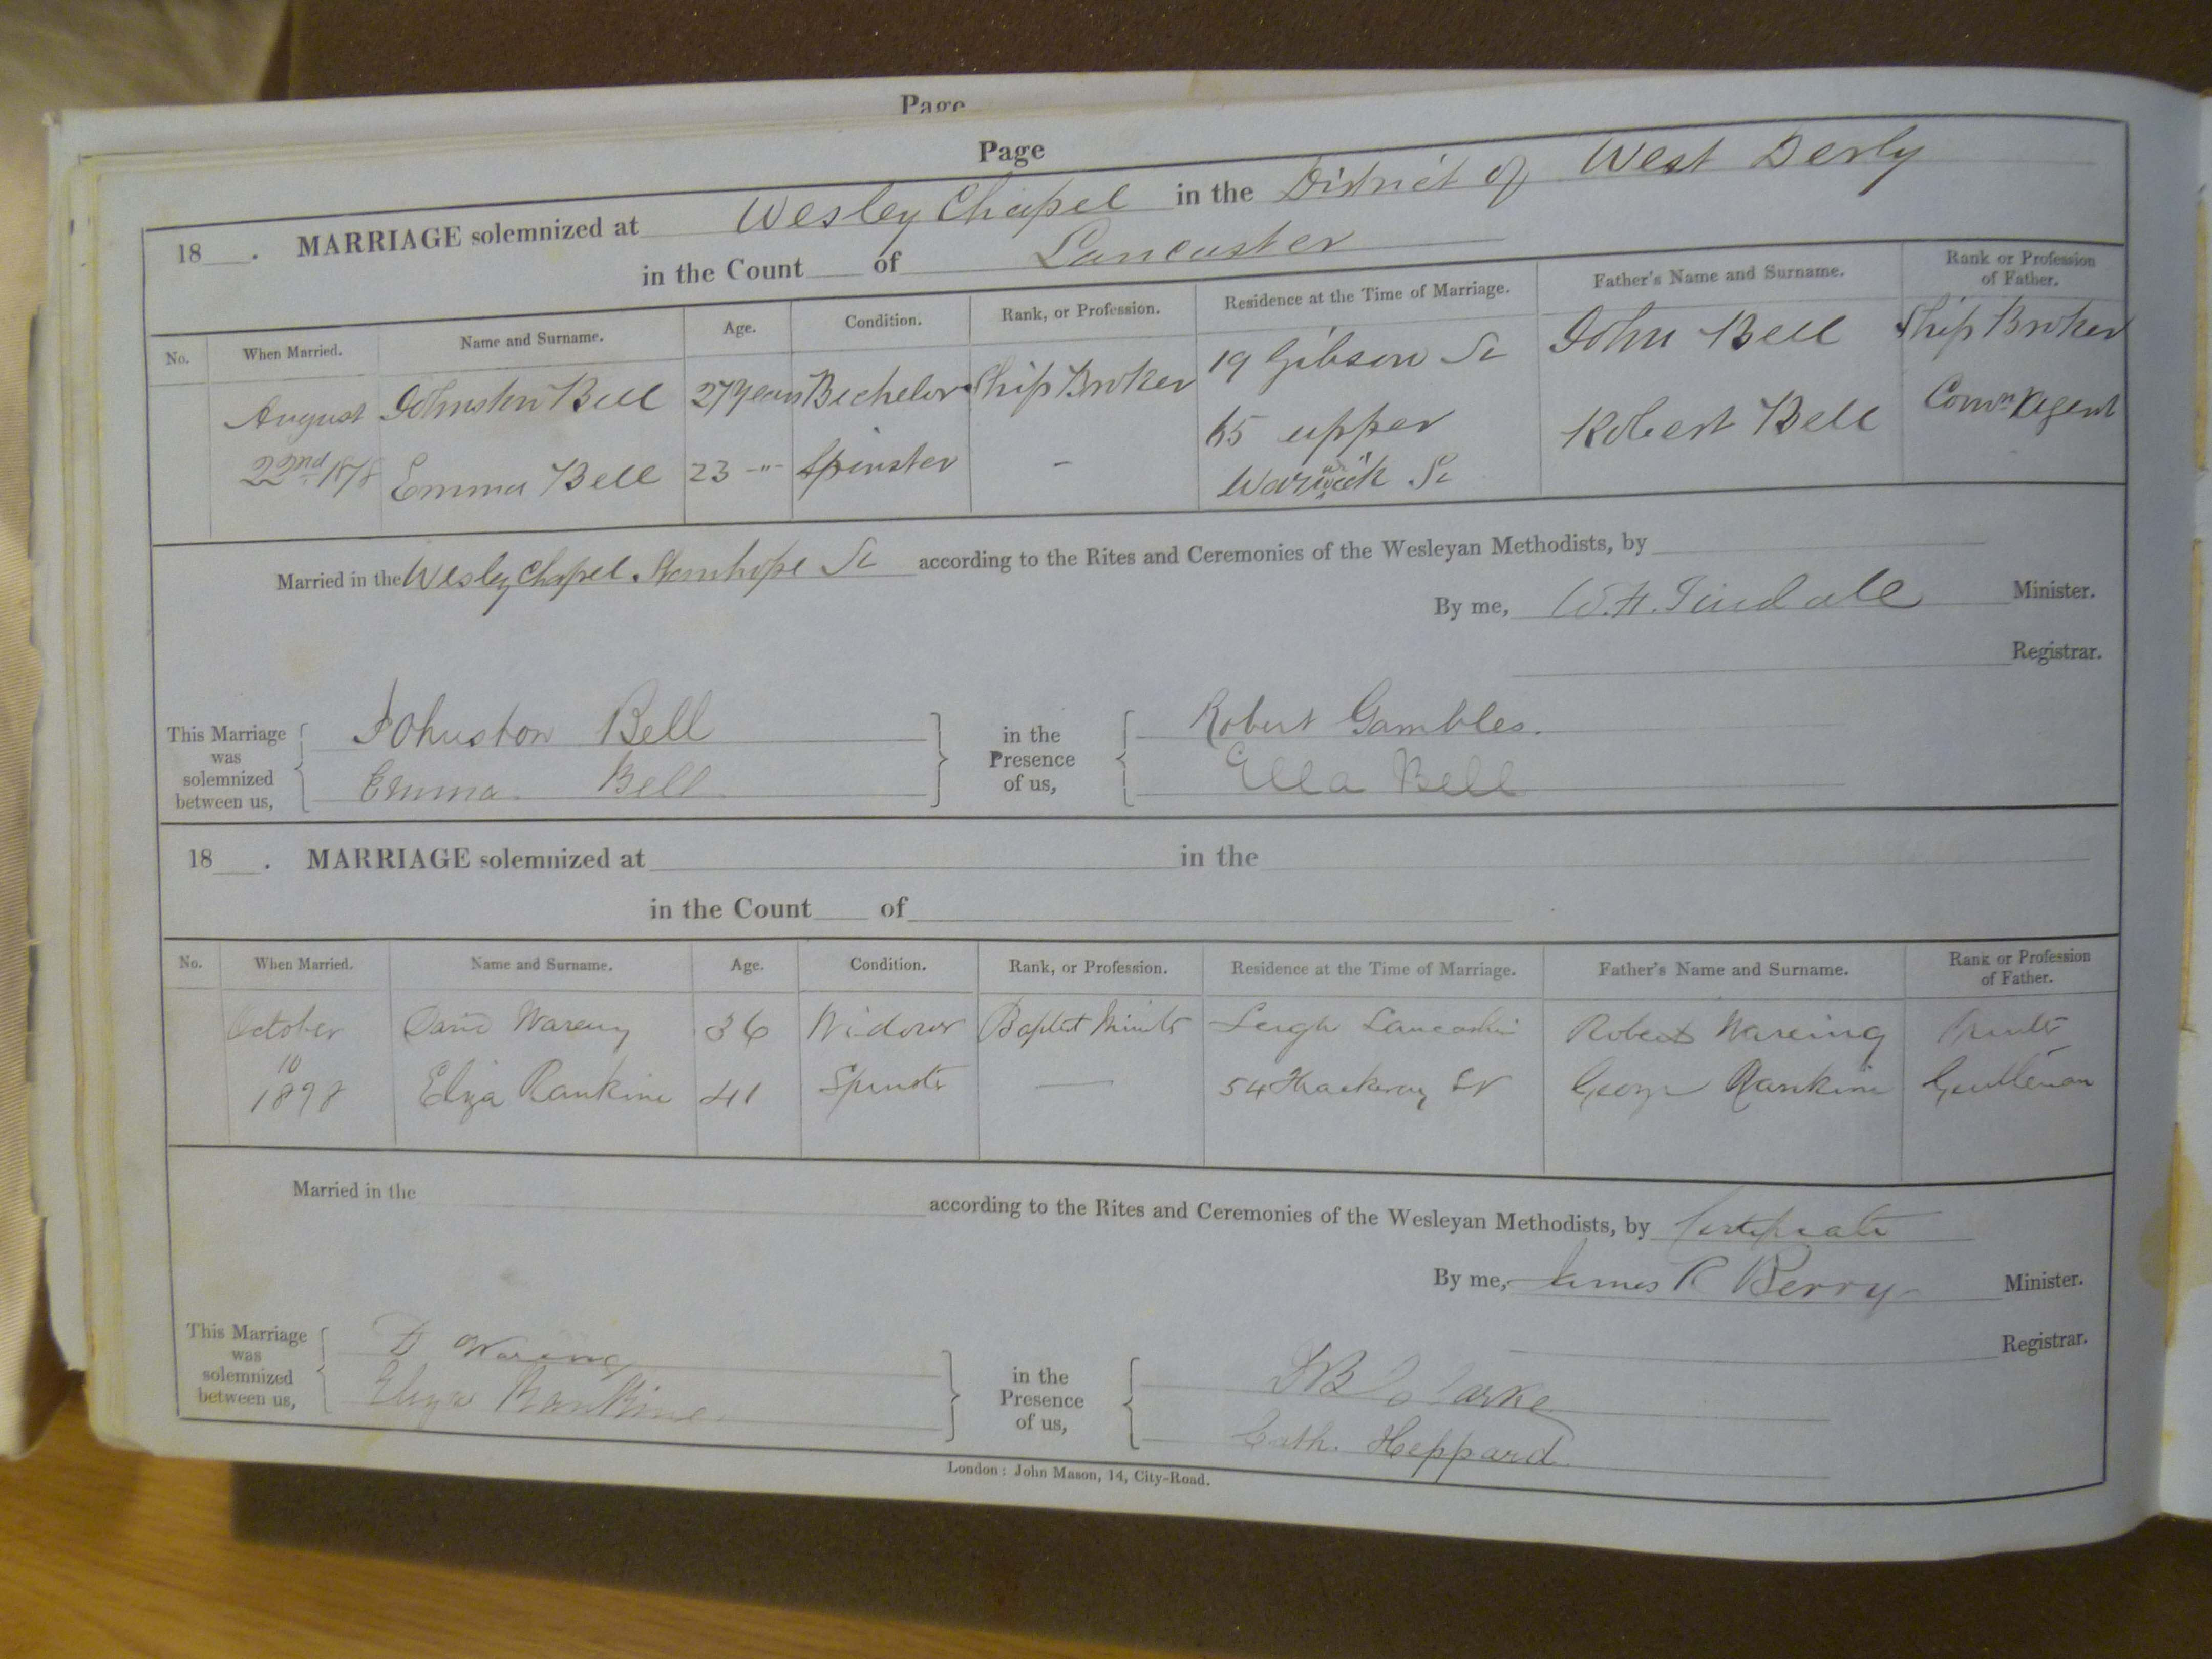 Page
Page
18 . MARRIAGE solemnized at Wesley Chapel in the District of West Derby
in the Count of Lancaster
No. When Married. Name and Surname. Age. Condition. Rank, or Profession. Residence at the Time of Marriage. Father's Name and Surname. Rank or Profession of Father.
August Johnston Bell 27 years Bachelor Ship Broker 19 Gibson St John Bell Ship Broker
22nd 1878 Emma Bell 23 -"- Spinster - 65 upper Warwick St Robert Bell Comn Agent
Married in the Wesley Chapel Stanhope St according to the Rites and Ceremonies of the Wesleyan Methodists, by
By me, W. H. Tindall Minister.
Registrar.
This Marriage was solemnized between us,
Johnston Bell
Emma Bell
in the Presence of us,
Robert Gambles.
Ella Bell
18 . MARRIAGE solemnized at in the
in the Count of
No. When Married. Name and Surname. Age. Condition. Rank, or Profession. Residence at the Time of Marriage. Father's Name and Surname. Rank or Profession of Father.
October David Wareing 36 Widower Baptist Minister Leigh Lancashire Robert Wareing
10 1898 Eliza Rankine 41 Spinster — 54 Thackeray St George Rankine Gentleman
Married in the according to the Rites and Ceremonies of the Wesleyan Methodists, by Certificate
By me, James R Berry Minister.
Registrar.
This Marriage was solemnized between us,
D Wareing
Eliza Rankine
in the Presence of us,
Clarke
Cath. Heppard
London: John Mason, 14, City-Road.